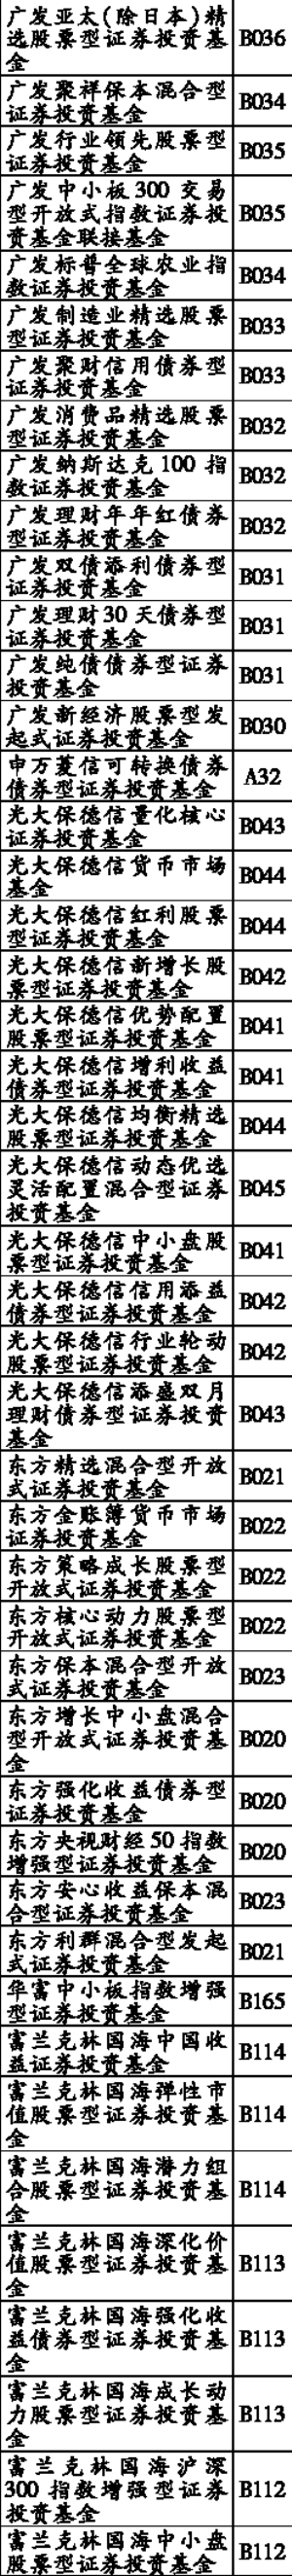 广发亚太(除日本)精
选股票型证券投资基
金
B036
广发聚祥保本混合型
证券投资基金
B034
广发行业领先股票型
证券投资基金
B035
广发中小板300交易
型开放式指数证券投
资基金联接基金
B035
广发标普全球农业指
数证券投资基金
B034
广发制造业精选股票
型证券投资基金
B033
广发聚财信用债券型
证券投资基金
B033
广发消费品精选股票
型证券投资基金
B032
广发纳斯达克100指
数证券投资基金
B032
广发理财年年红债券
型证券投资基金
B032
广发双债添利债券型
证券投资基金
B031
广发理财30天债券型
证券投资基金
B031
广发纯债债券型证券
投资基金
B031
广发新经济股票型发
起式证券投资基金
B030
申万菱信可转换债券
债券型证券投资基金
A32
光大保德信量化核心
证券投资基金
B043
光大保德信货币市场
基金
B044
光大保德信红利股票
型证券投资基金
B044
光大保德信新增长股
票型证券投资基金
B042
光大保德信优势配置
股票型证券投资基金
B041
光大保德信增利收益
债券型证券投资基金
B041
光大保德信均衡精选
股票型证券投资基金
B044
光大保德信动态优选
灵活配置混合型证券
投资基金
B045
光大保德信中小盘股
票型证券投资基金
B041
光大保德信信用添益
债券型证券投资基金
B042
光大保德信行业轮动
股票型证券投资基金
B042
光大保德信添盛双月
理财债券型证券投资
基金
B043
东方精选混合型开放
式证券投资基金
B021
东方金账簿货币市场
证券投资基金
B022
东方策略成长股票型
开放式证券投资基金
B022
东方核心动力股票型
开放式证券投资基金
B022
东方保本混合型开放
式证券投资基金
B023
东方增长中小盘混合
型开放式证券投资基
金
B020
东方强化收益债券型
证券投资基金
B020
东方央视财经50指数
增强型证券投资基金
B020
东方安心收益保本混
合型证券投资基金
B023
东方利群混合型发起
式证券投资基金
B021
华富中小板指数增强
型证券投资基金
B165
富兰克林国海中国收
益证券投资基金
B114
富兰克林国海弹性市
值股票型证券投资基
金
B114
富兰克林国海潜力组
合股票型证券投资基
金
B114
富兰克林国海深化价
值股票型证券投资基
金
B113
富兰克林国海强化收
益债券型证券投资基
金
B113
富兰克林国海成长动
力股票型证券投资基
金
B113
富兰克林国海沪深
300指数增强型证券
投资基金
B112
富兰克林国海中小盘
股票型证券投资基金
B112